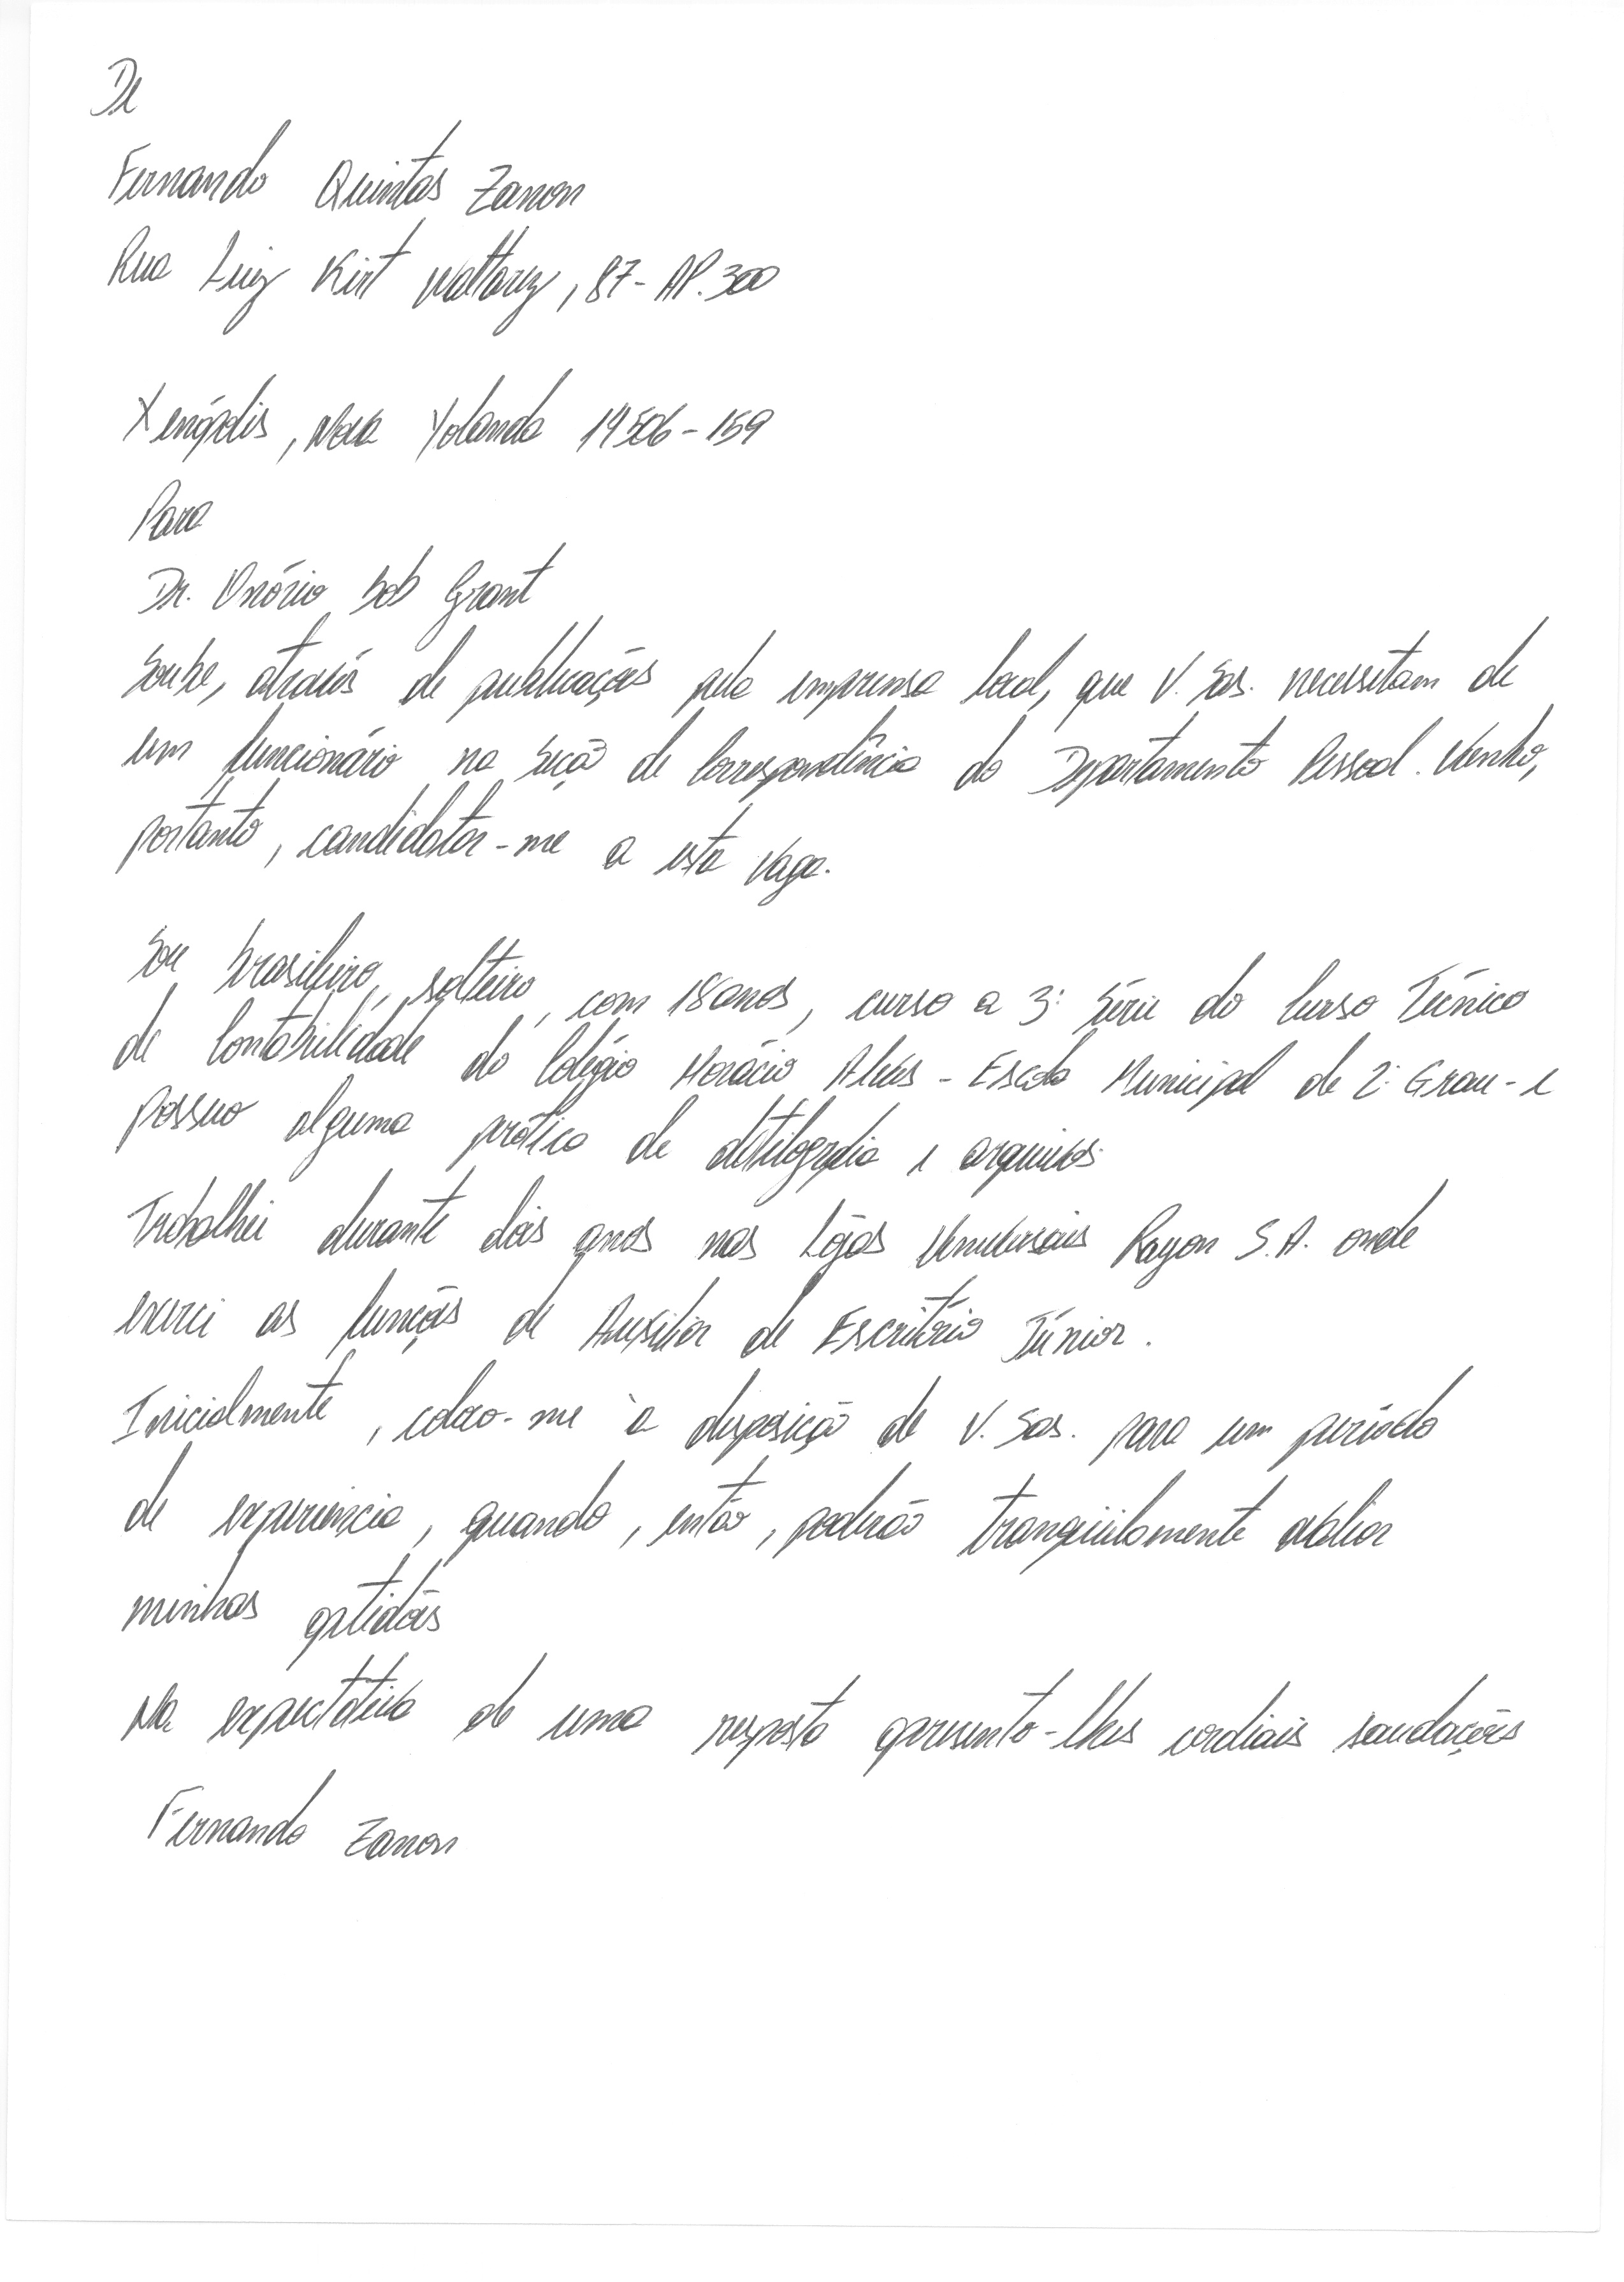 De
Fernando Quintas Zanon
Rua Luiz Kirt Wattorez, 87 - AP. 300
Xenópolis, Nova Yolanda 19506-159
Para
Dr. Onório Bob Grant
Soube, através de publicações pela imprensa local, que V. Sas. necessitam de
um funcionário na Seção de Correspondência do Departamento Pessoal. Venho,
portanto, candidatar-me a esta vaga.
Sou brasileiro, solteiro, com 18 anos, curso a 3ª Série do Curso Técnico
de Contabilidade do Colégio Horácio Alves - Escola Municipal de 2º Grau - e
possuo alguma prática de datilografia e arquivos.
Trabalhei durante dois anos nas Lojas Universais Rayon S.A. onde
exerci as funções de Auxiliar de Escritório Júnior.
Inicialmente, coloco-me à disposição de V. Sas. para um período
de experiência, quando, então, poderão tranqüilamente avaliar
minhas aptidões
Na expectativa de uma resposta apresento-lhes cordiais saudações
Fernando Zanon